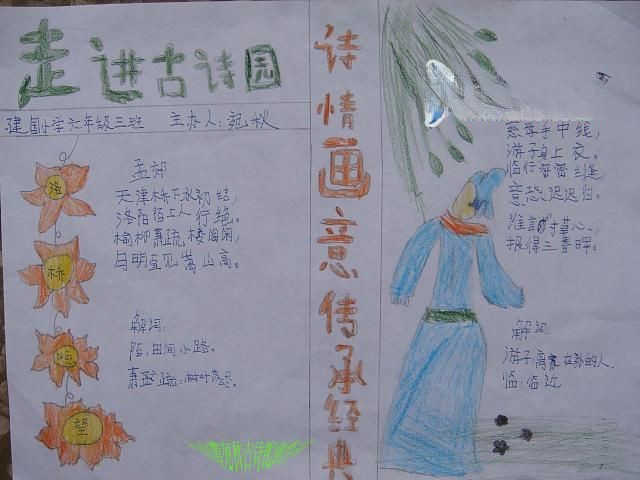 走进古诗园
建国小学六年级三班 主办人:宛姒
诗情画意传承经典
洛
桥
晚
望
孟郊
天津桥下水初结,
洛阳陌上人行绝。
榆柳萧疏楼阁闲,
月明直见嵩山高。
解词:
陌:田间小路。
萧疏:树叶
慈母手中线,
游子身上衣。
临行密密缝,
意恐迟迟归。
谁言寸草心,
报得三春晖。
解词:
游子:离家在外的人。
临:临近